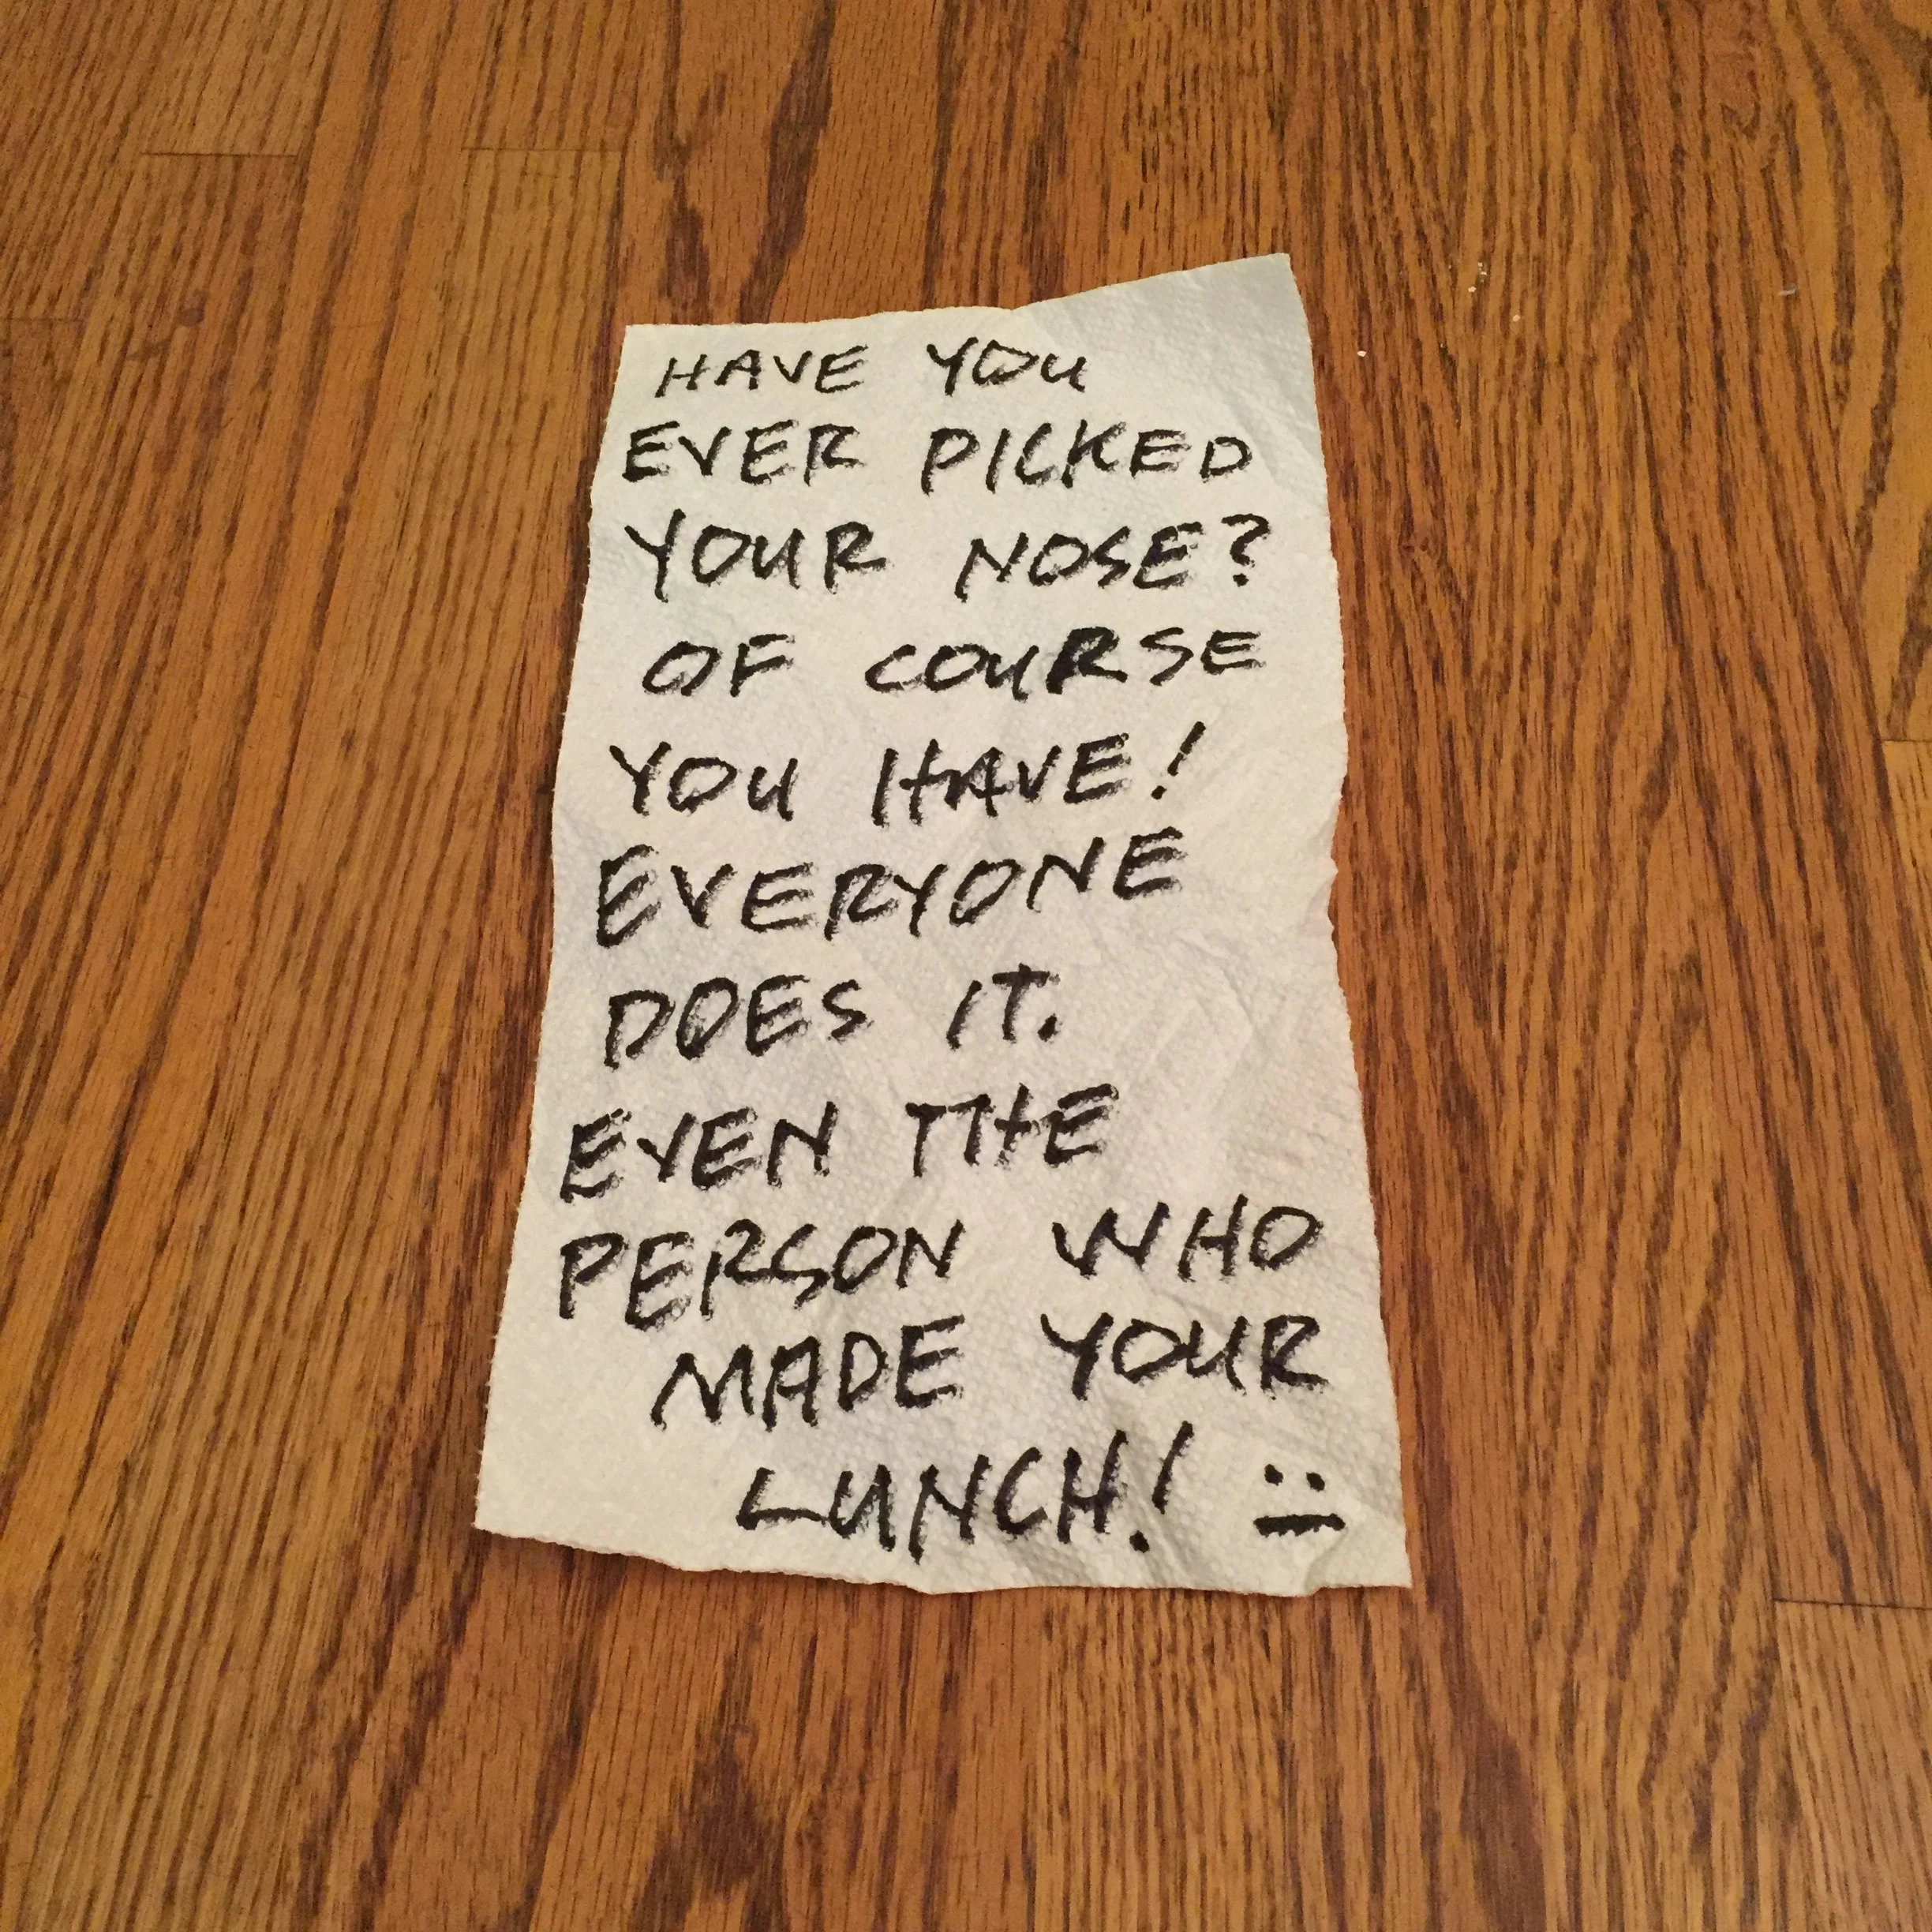 HAVE YOU
EVER PICKED
YOUR NOSE?
OF COURSE
YOU HAVE!
EVERYONE
DOES IT.
EVEN THE
PERSON WHO
MADE YOUR
LUNCH!